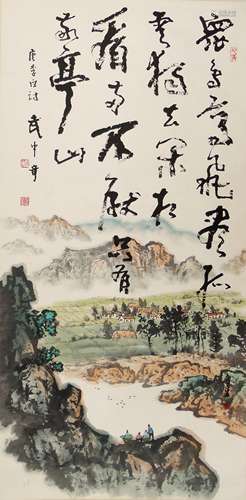 眾鳥高飛盡孤
雲獨去閑相
看兩不厭只有
敬亭山
唐李白詩
武中奇